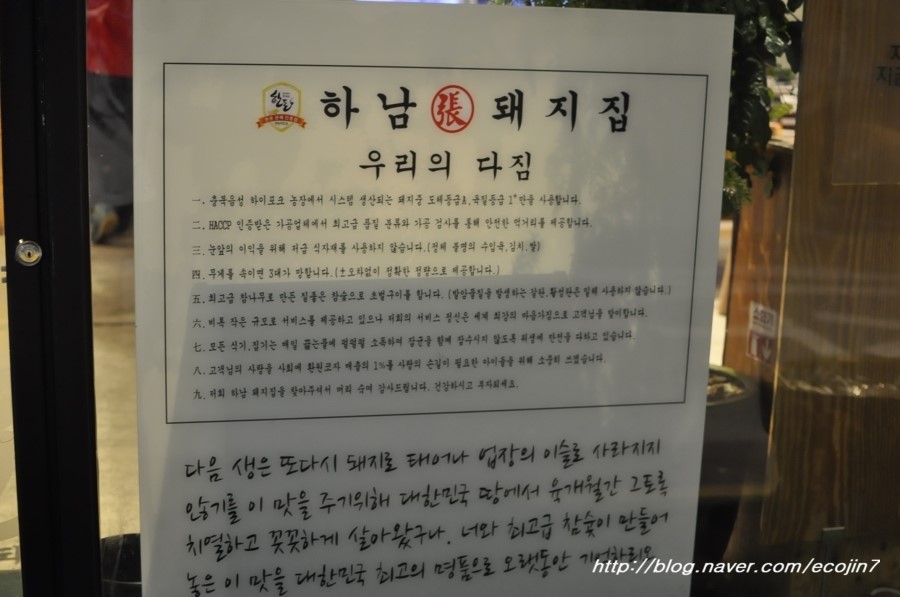 한돈
하남 張 돼지집
우리의 다짐
一. 충북음성 하이포크 농장에서 시스템 생산되는 돼지중 도체등급A, 육질등급 1⁺만을 사용합니다.
二. HACCP 인증받은 가공업체에서 최고급 품질 분류와 가공 검사를 통해 안전한 먹거리를 제공합니다.
三. 눈앞의 이익을 위해 저급 식자재를 사용하지 않습니다.(정체 불명의 수입육,김치,쌀)
四. 무게를 속이면 3대가 망합니다.(±오차없이 정확한 정량으로 제공합니다.)
五. 최고급 참나무로 만든 질좋은 참숯으로 초벌구이를 합니다. (발암물질을 발생하는 갈탄,활성탄은 일체 사용하지 않습니다.)
六. 비록 작은 규모로 서비스를 제공하고 있으나 저희의 서비스 정신은 세계 최강의 마음가짐으로 고객님을 맞이합니다.
七. 모든 식기,집기는 매일 끓는물에 펄펄펄 소독하여 장균을 함께 장수시키지 않도록 위생에 만전을 다하고 있습니다.
八. 고객님의 사랑을 사회에 환원코자 매출의 1%를 사랑의 손길이 필요한 아이들을 위해 소중히 쓰겠습니다.
九. 저희 하남 돼지집을 찾아주셔서 머리 숙여 감사드립니다. 건강하시고 부자되세요.
다음 생은 또다시 돼지로 태어나 업장의 이슬로 사라지지
않기를 이 맛을 주기위해 대한민국 땅에서 육개월간 그토록
치열하고 꼿꼿하게 살아왔구나. 너와 최고급 참숯이 만들어
놓은 이 맛을 대한민국 최고의 명품으로 오랫동안 기억하리오
http://blog.naver.com/ecojin7